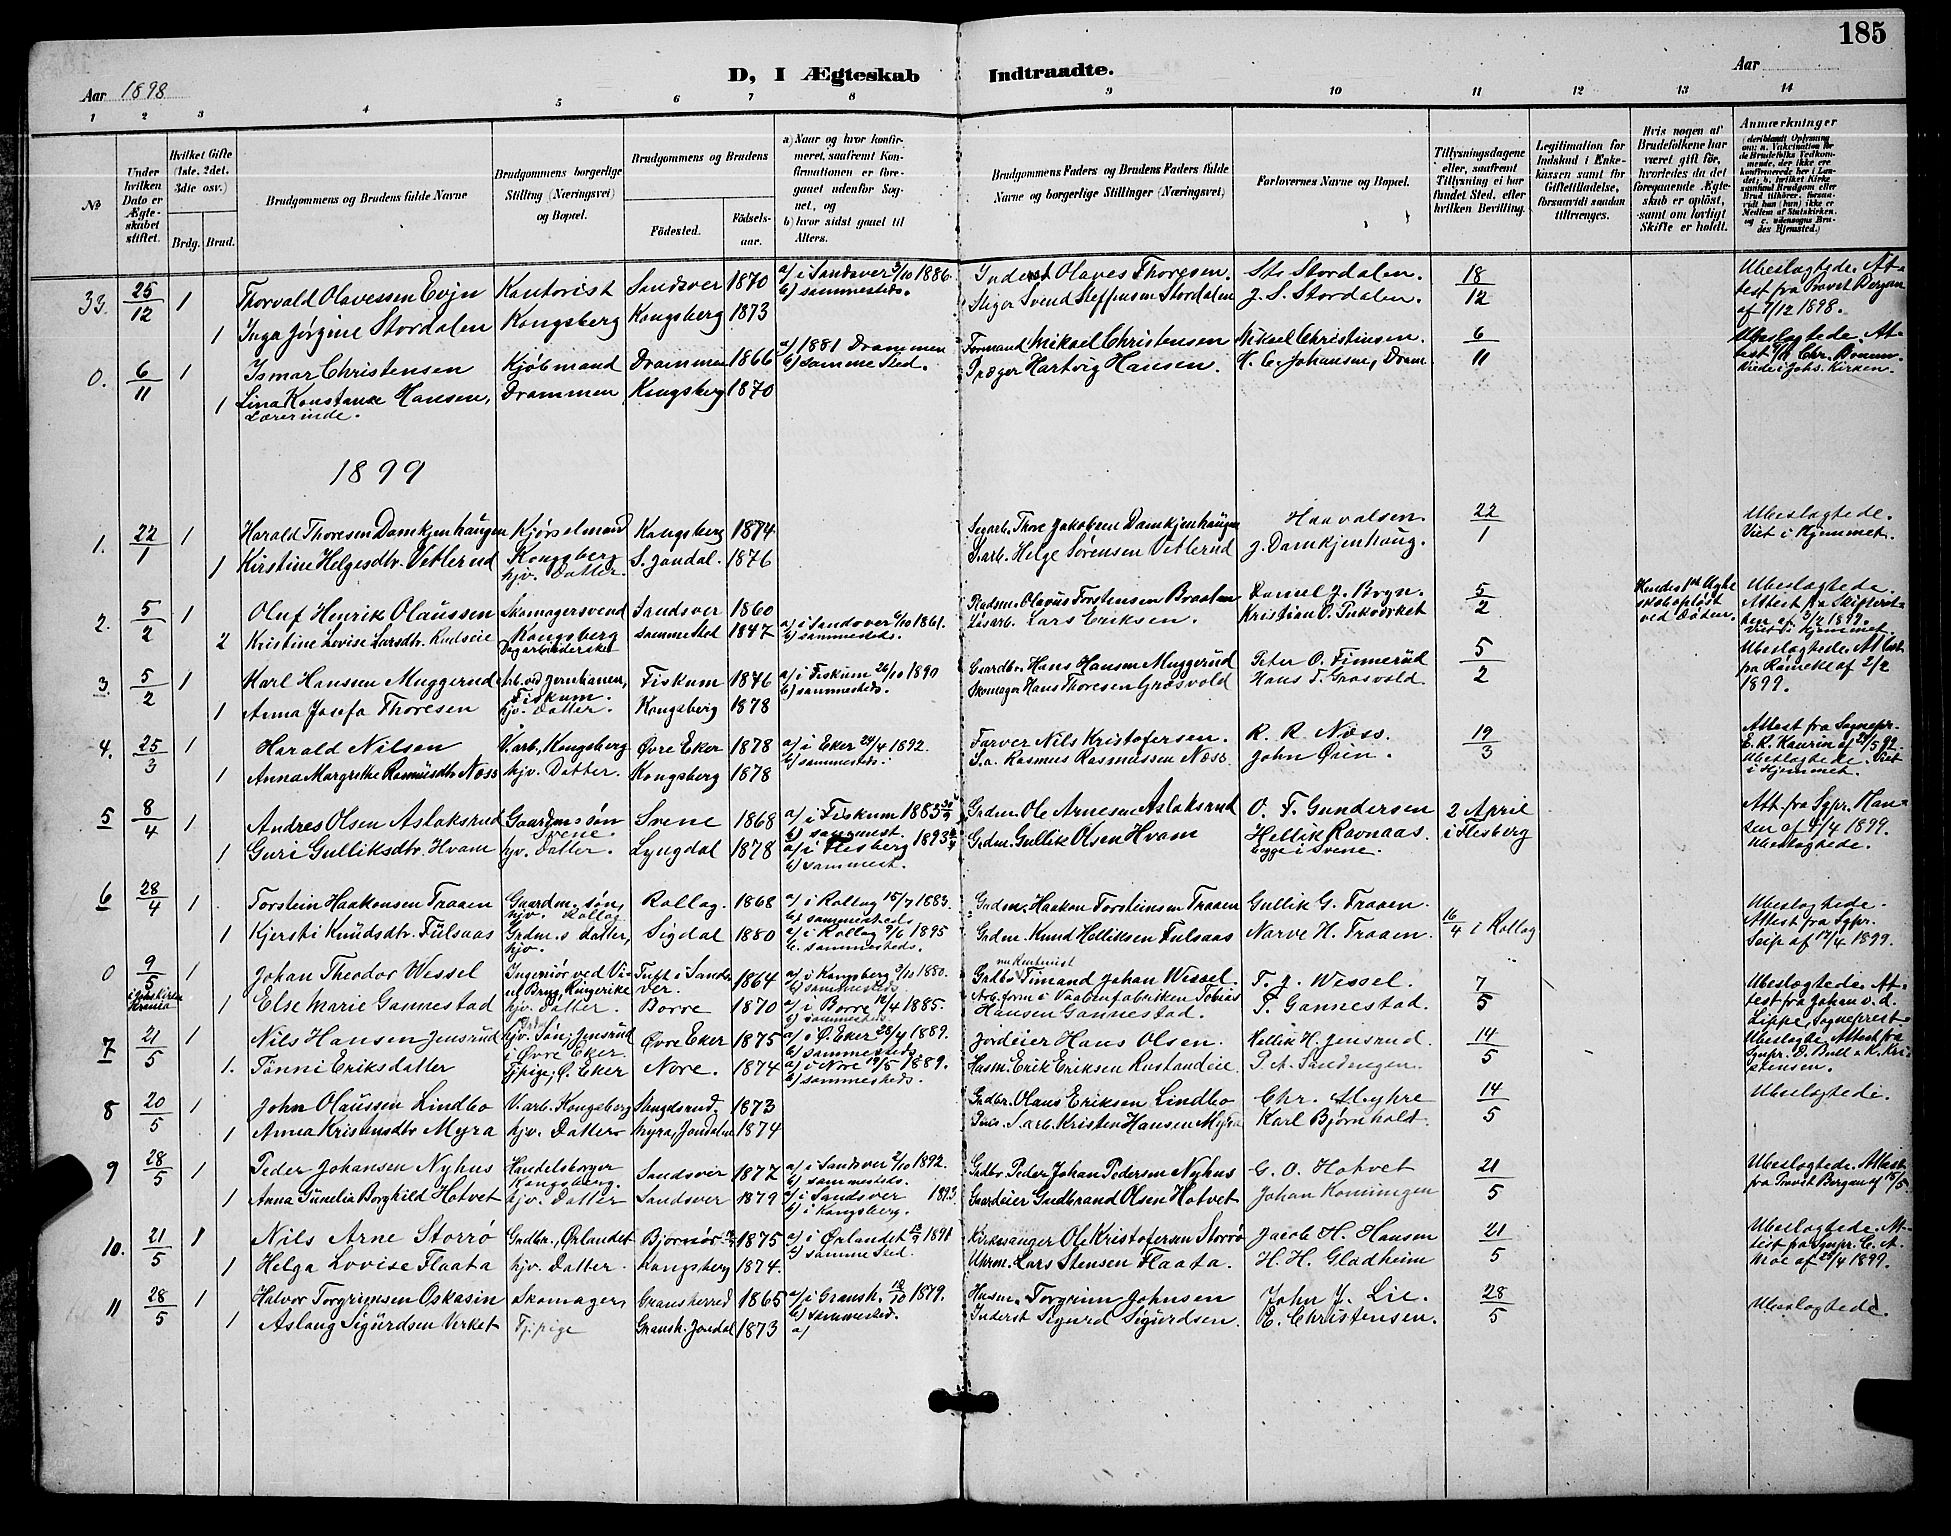 185
D, I Ægteskab Indtraadte.
Aar 1898
Aar
1 2 3 4 5 6 7 8 9 10 11 12 13 14
No
Under hvilken Dato er Ægteskabet stiftet.
Hvilket Gifte (1ste, 2det, 3die osv.)
Brdg. Brud.
Brudgommens og Brudens fulde Navne
Brudgommens borgerlige Stilling (Næringsvei) og Bopæl.
Brudgommens og Brudens
Fødested. Fødselsaar.
a) Naar og hvor konfirmeret, saafremt Konfirmationen er foregaaet udenfor Sognet, og
b) hvor sidst gaaet til Alters.
Brudgommens Faders og Brudens Faders fulde Navne og borgerlige Stillinger (Næringsvei)
Forlovernes Navne og Bopæl.
Tillysningsdagene eller, saafremt Tillysning ei har fundet Sted, efter hvilken Bevilling.
Legitimation for Indskud i Enkekassen samt for Giftetilladelse, forsaavidt saadan tiltrænges.
Hvis nogen af Brudefolkene har været gift før, hvorledes da det foregaaende Ægteskab er opløst, samt om lovligt Skifte er holdt.
Anmærkninger
33. 25/12 1 Thorvald Olavessen Evju Kontorist Sandsver 1870 a) i Sandsver 3/10 1886. b) sammesteds. Inderst Olaves Thoresen. St. Stordalen. 18/12 Ubeslægtede. Attest fra Provst Bergan af 7/12 1898.
1 Inga Jørgine Stordalen Kongsberg Kongsberg 1873 Stiger Svend Steffensen Stordalen J. S. Stordalen.
0. 6/11 1 Ismar Christensen Kjøbmand Drammen 1866 a) 1881 Drammen b) samme Sted. Formand Mikael Christensen Mikael Christensen. 6/11 Ubeslægtede. Viede i Johs. Kirken.
1 Lina Konstance Hansen, Lærerinde. Drammen Kongsberg 1870 Præger Hartvig Hansen. H. C. Johansen, Dram
1899
1. 22/1 1 Harald Thoresen Damkjenhaugen Kjørselmand Kongsberg 1874 Thore Jakobsen Damkjenhaugen Haavalsen. 22/1 Ubeslægtede. Viet i Hjemmet.
1 Kirstine Helgesdtr. Vetlerud Kongsberg hjv. Datter. S. Jondal. 1876 S.arb. Helge Sørensen Vetlerud J. Damkjenhaug.
2. 5/2 1 Oluf Henrik Olaussen Skomagersvend Sandsver 1860 Olavus Torstensen Braaten Daniel J. Bryn. 5/2 Ubeslægtede. Attest fra Skifteretten af 3/2 1899. Viet i Hjemmet.
2 Kristine Lovise Larsdtr. Kongsberg Dagarbeiderske samme Sted 1847 a) i Sandsver 6/10 1861. b) sammesteds. Lars Eriksen. Kristian O.
3 5/2 1 Karl Hanssen Muggerud Fiskum. Fiskum 1876 a) i Fiskum 26/10 1890 b) sammesteds. Gaardbr. Hans Hansen Muggerud Peter O. Finnerud 5/2 Ubeslægtede. Attest af 2/2 1899.
1 Anna Josefa Thoresen hjv. Datter. Kongsberg 1878 Skomager Hans Thoresen Grosvold Hans T. Grosvold.
4. 25/3 1 Harald Nilsen V.arb., Kongsberg Øvre Eker 1878 a) i Eker 24/4 1892. b) sammesteds. Farver Nils Kristofersen. R. R. Næss. 19/3 Attest fra Sognepr. Ubeslægtede. Viet i Hjemmet.
1 Anna Margrethe Rasmusdtr. Næss hjv. Datter. Kongsberg 1878 S.a. Rasmus Rasmussen Næss. John Øien.
5 8/4 1 Andres Olsen Aslaksrud Gaardmssøn Svene. Svene 1868 a) i Fiskum 1883 b) sammest. Grdm. Ole Arnesen Aslaksrud O. T. Gundersen 2 April i Flesberg Att. fra Sgpr. Hansen af 4/4 1899. Ubeslægtede.
1 Guri Gulliksdtr. Hvam hjv. Datter. Lyngdal 1878 a) i Flesberg 1893 b) sammest. Grdm. Gullik Olsen Hvam Hellik Ravnaas. begge i Svene.
6 28/4 1 Torstein Haakonsen Traaen Gaardm. søn, hjv. Rollag Rollag. 1868 a) i Rollag 15/7 1883. b) sammesteds Grdm. Haakon Torsteinsen Traaen Gullik G. Traaen. 16/4 i Rollag Ubeslægtede. Attest fra Sgpr. Seip af 17/4 1899.
1 Kjersti Knudsdtr. Fulsaas Grdm.s datter, hjv. Sigdal 1880 a) i Rollag 9/6 1895 b. sammesteds. Grdm. Knud Helliksen Fulsaas Narve H. Traaen.
0 9/5 1 Johan Theodor Wessel Ingeniør ved Tuft i Sandsver. 1864 a) i Kongsberg 3/10 1880. b) sammesteds. Timand Johan Wessel. T. J. Wessel. 7/5 Ubeslægtede. Attest fra Johan v. d. Lippe, Sogneprest.
1 Else Marie Gannestad hjv. Datter. Borre 1870 a) i Borre 12/4 1885. b) sammesteds. Arb.form. i Vaabenfabriken Tobias Hansen Gannestad. T. Gannestad.
7 21/5 1 Nils Hansen Jensrud hjv. Søn, Jensrud i Øvre Eker Øvre Eker 1875 a) i Ø. Eker 28/4 1889. b) sammesteds. Jordeier Hans Olsen. Hellik H. Jensrud. 14/5 Ubeslægte. Attest fra Sgpr. D. Bull & K. Kristensen.
1. Tønni Eriksdatter Tjpige, Ø. Eker Nore. 1874 a) i Nore 19/5 1889. b) sammesteds. Husm. Erik Eriksen Rustandeie. P. A. Sandengen.
8 20/5 1 John Olaussen Lindbo V.arb. Kongsberg 1873 Grdbr. Olaus Eriksen Lindbo Chr. Myhre 14/5 Ubeslægtede.
1 Anna Kristensdtr Myra hjv. Datter Myra, Jondalen 1874 S.arb. Kristen Hansen Myra Karl Bjørnholdt.
9 28/5 1 Peder Johansen Nyhus Handelsborger Kongsberg. Sandsver 1877 a) i Sandsver 2/10 1892. b) sammesteds. Grdbr. Peder Johan Pedersen Nyhus G. O. Hotvet 21/5 Ubeslægtede. Attest fra Provst Bergan af 15/5.
1 Anna Gunelia Borghild Hotvet hjv. Datter Sandsver 1879 a) i Sandsver 1893. b) i Kongsberg. Gaardeier Gudbrand Olsen Hotvet Johan Korningen
10. 21/5 1 Nils Arne Storrø Grdbr., Ørlandet Bjørnør 1875 a) i Ørlandet 1891 b) samme Sted. Kirkesanger Ole Kristofersen Storrø Jacob H. Hansen 21/5 Ubeslægtede. Attest fra Sgnpr. af 25/4 1899.
1 Helga Lovise Flaata hjv. Datter. Kongsberg 1874. Uhrm. Lars Stensen Flaata. H. H. Gladheim
11 28/5 1 Halvor Torgrimsen Oskasin Skomager, Gransherred 1865 a) i Gransh. 12/10 1879. b) sammested. Husm. Torgrim Johnsen John J. Lie. 28/5 Ubeslægtede.
1 Aslaug Sigurdsen Verket Tjpige Gransh. Jondal 1873 a) Inderst Sigurd Sigurdsen. E. Christensen.